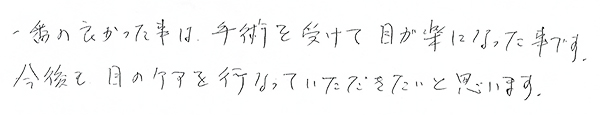 一番の良かった事は、手術を受けて目が楽になった事です。
今後も目のケアを行なっていただきたいと思います。